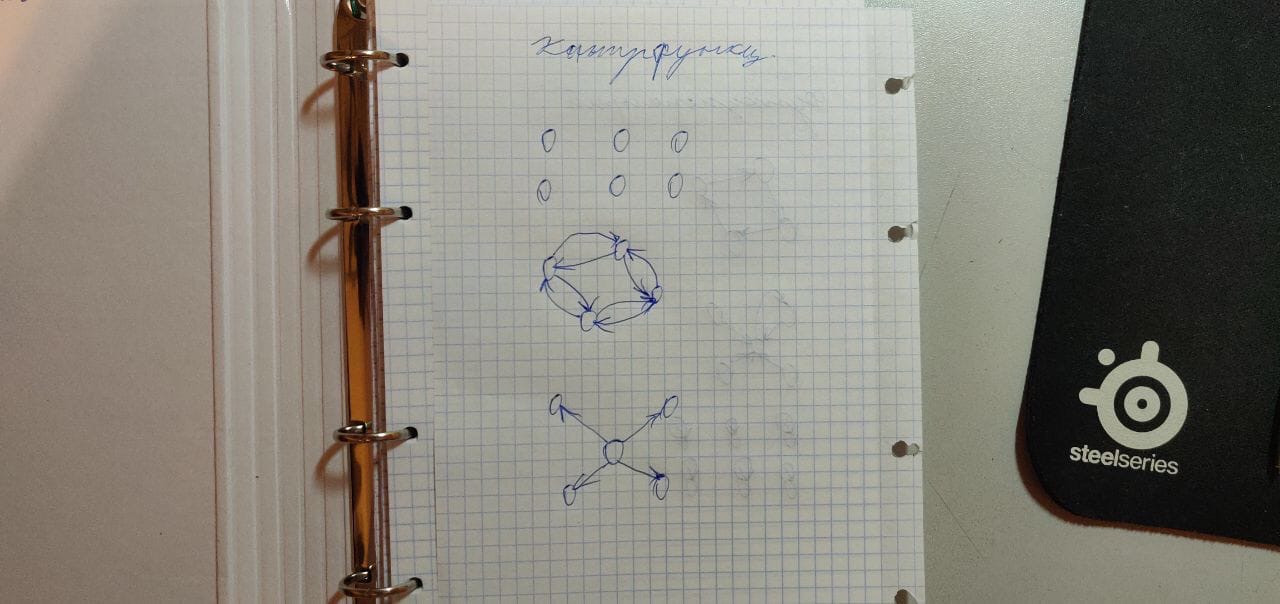 контрфункц.
steelseries